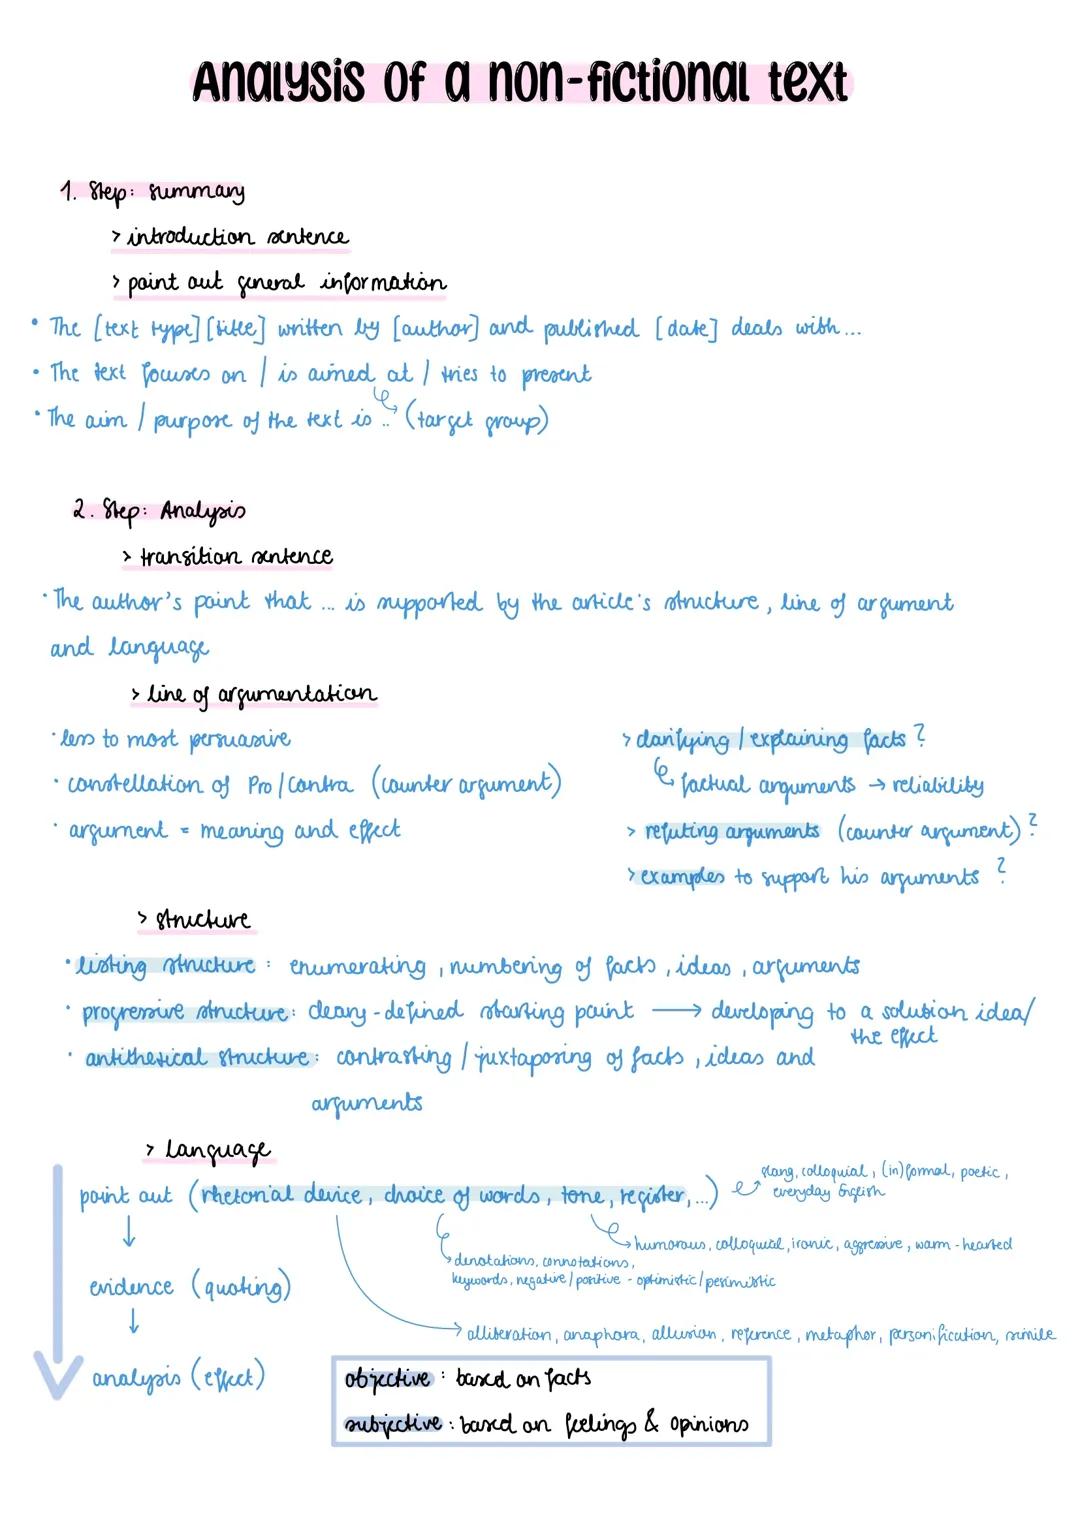 Analysis of a non-fictional text
1. Step: summary
> introduction sentence
> point out general information
• The [text type] [title] written by [author] and published [date] deals with...
• The text focuses on / is aimed at / tries to present
• The aim / purpose of the text is .. (target group)
2. Step: Analysis
> transition sentence
• The author's point that ... is supported by the article's structure, line of argument
and language
> line of argumentation
• less to most persuasive
• constellation of Pro/Contra (counter argument)
• argument = meaning and effect
> clarifying / explaining facts ?
factual arguments → reliability
> refuting arguments (counter argument) ?
> examples to support his arguments ?
> structure
• listing structure : enumerating , numbering of facts , ideas , arguments
• progressive structure: cleary-defined starting point → developing to a solution idea/
the effect
• antithetical structure: contrasting / juxtaposing of facts , ideas and
arguments
> language
point out (rhetorial device, choice of words, tone, register,...)
slang, colloquial, (in)formal, poetic,
everyday English
humorous, colloquial, ironic, aggressive, warm-hearted
denotations, connotations,
keywords, negative/positive - optimistic/pessimistic
↓
evidence (quoting)
↓
alliteration, anaphora, allusion, reference, metaphor, personification, simile
analysis (effect)
objective : based on facts
subjective : based on feelings & opinions